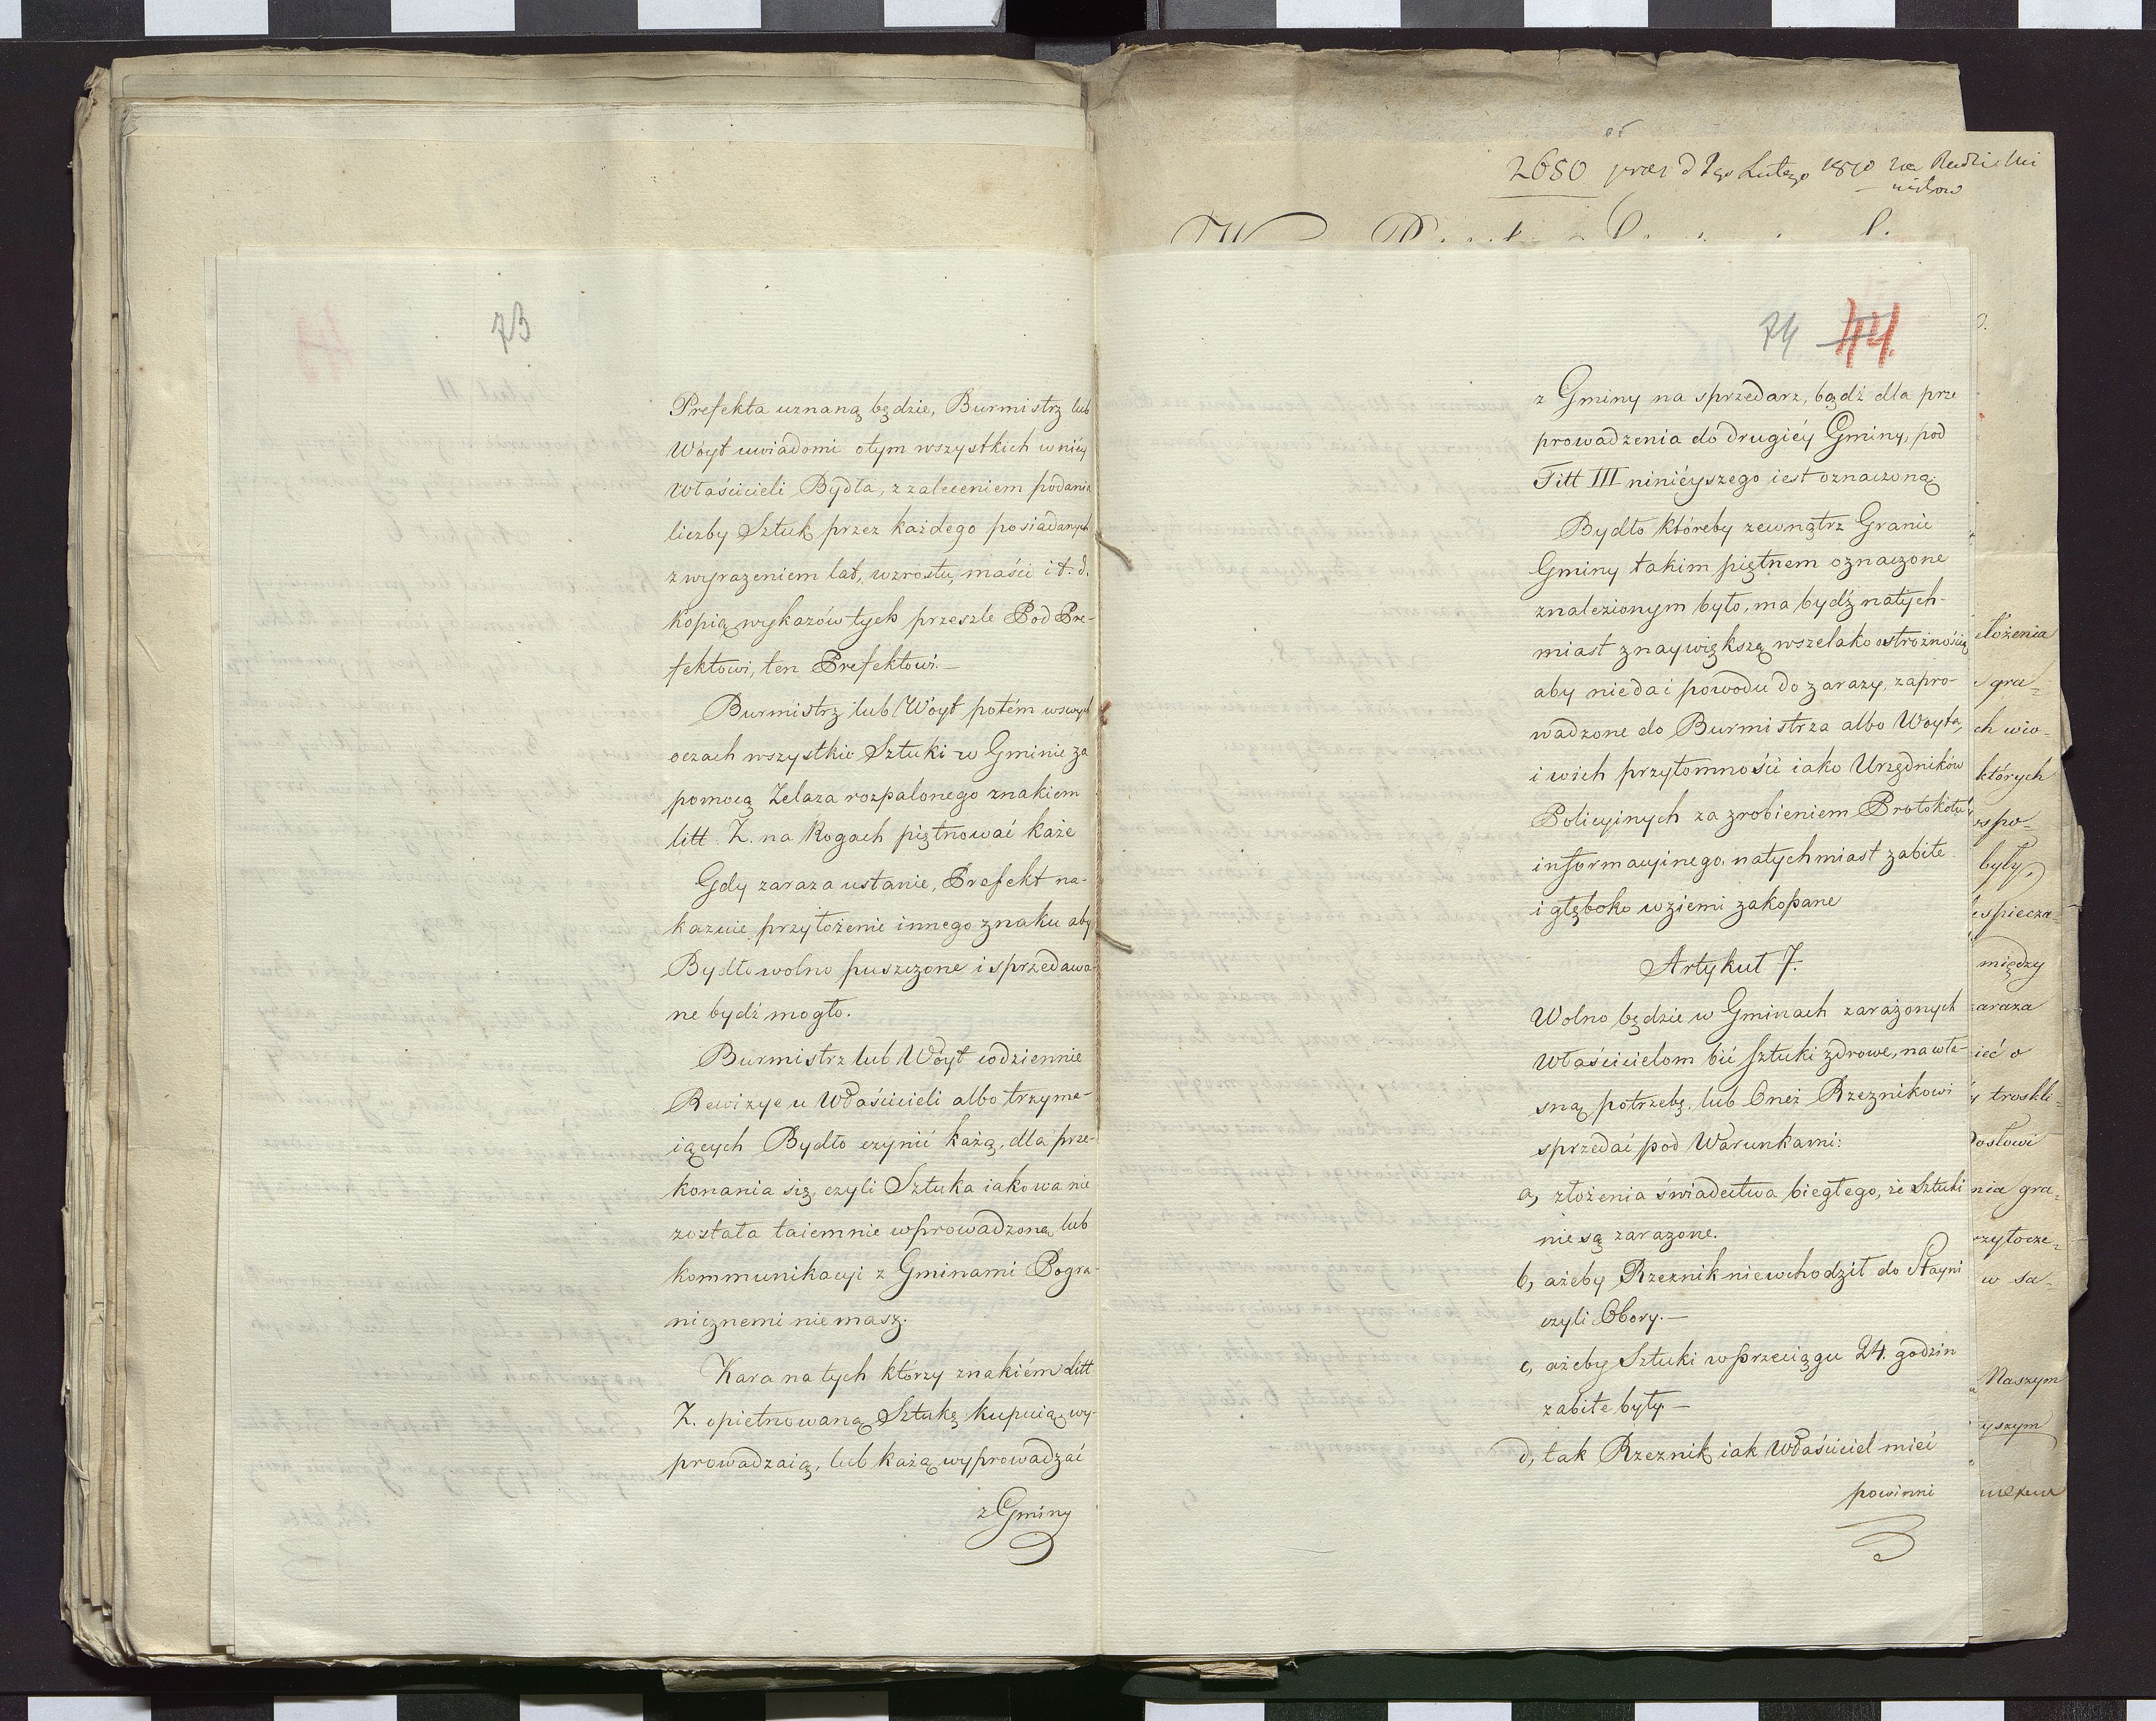 73
Prefekta uznaną będzie, Burmistrz lub
Wóyt uwiadomi otym wszystkich wniéy
Właścicieli Bydła, z zaleceniem podania
liczby Sztuk przez każdego posiadanych
z wyrażeniem lat, wzrostu, maści i t. d.
Kopią wykazów tych prześle Pod Pre-
fektowi, ten Prefektowi.—
Burmistrz lub Wóyt potém wswych
oczach wszystkie Sztuki w Gminie za
pomocą Żelaza rozpalonego znakiem
litt. Z. na Rogach piętnować każe
Gdy zaraza ustanie, Prefekt na-
kazuie przyłożenie innego znaku aby
Bydło wolno puszczone i sprzedawa-
ne bydź mogło.
Burmistrz lub Wóyt codziennie
Rewizye u Właścicieli albo trzyma-
iących Bydło czynić każą, dla prze-
konania się, czyli Sztuka iakowa nie
została taiemnie wprowadzona, lub
kommunikacyi z Gminami Pogra-
nicznemi niemasz.
Kara na tych którzy znakiém Litt
Z. opiętnowaną Sztukę kupuią, wy-
prowadzaią, lub każą wyprowadzać
z Gminy
2680 praes d 1go Lutego 1810
74 44.
z Gminy na sprzedarz, bądź dla prze
prowadzenia do drugiéy Gminy, pod
Titt III ninieyszego iest oznaczoną.
Bydło któreby zewnątrz Granic
Gminy takim piętnem oznaczone
znalezionym było, ma bydź natych-
miast znaywiększą wszelako ostrożnością
aby niedać powodu do zarazy, zapro-
wadzone do Burmistrza albo Woyta,
i wich przytomności iako Urzędników
Policyinych za zrobieniem Protokółu
informacyinego, natychmiast zabite
i głęboko w ziemi zakopane
Artykuł 7.
Wolno będzie w Gminach zarażonych
Właścicielom bić sztuki zdrowe, na wła-
sną potrzebę, lub Oneż Rzeznikowi
sprzedać pod Warunkami:
a, złożenia świadectwa biegłego, że Sztuki
nie są zarażone.
b, ażeby Rzeznik niewchodził do Stayni
czyli Obory.—
c, ażeby Sztuki wprzeciągu 24. godzin
zabite były—
d, tak Rzeznik iak Właściciel mieć
powinni
ełożenia
gra-
ch wio-
których
spo-
były,
espiecza-
między
zaraza
ieć o
troskli-
Posłowi
nia gra-
rzytocze-
w sa-
Naszym
yszym